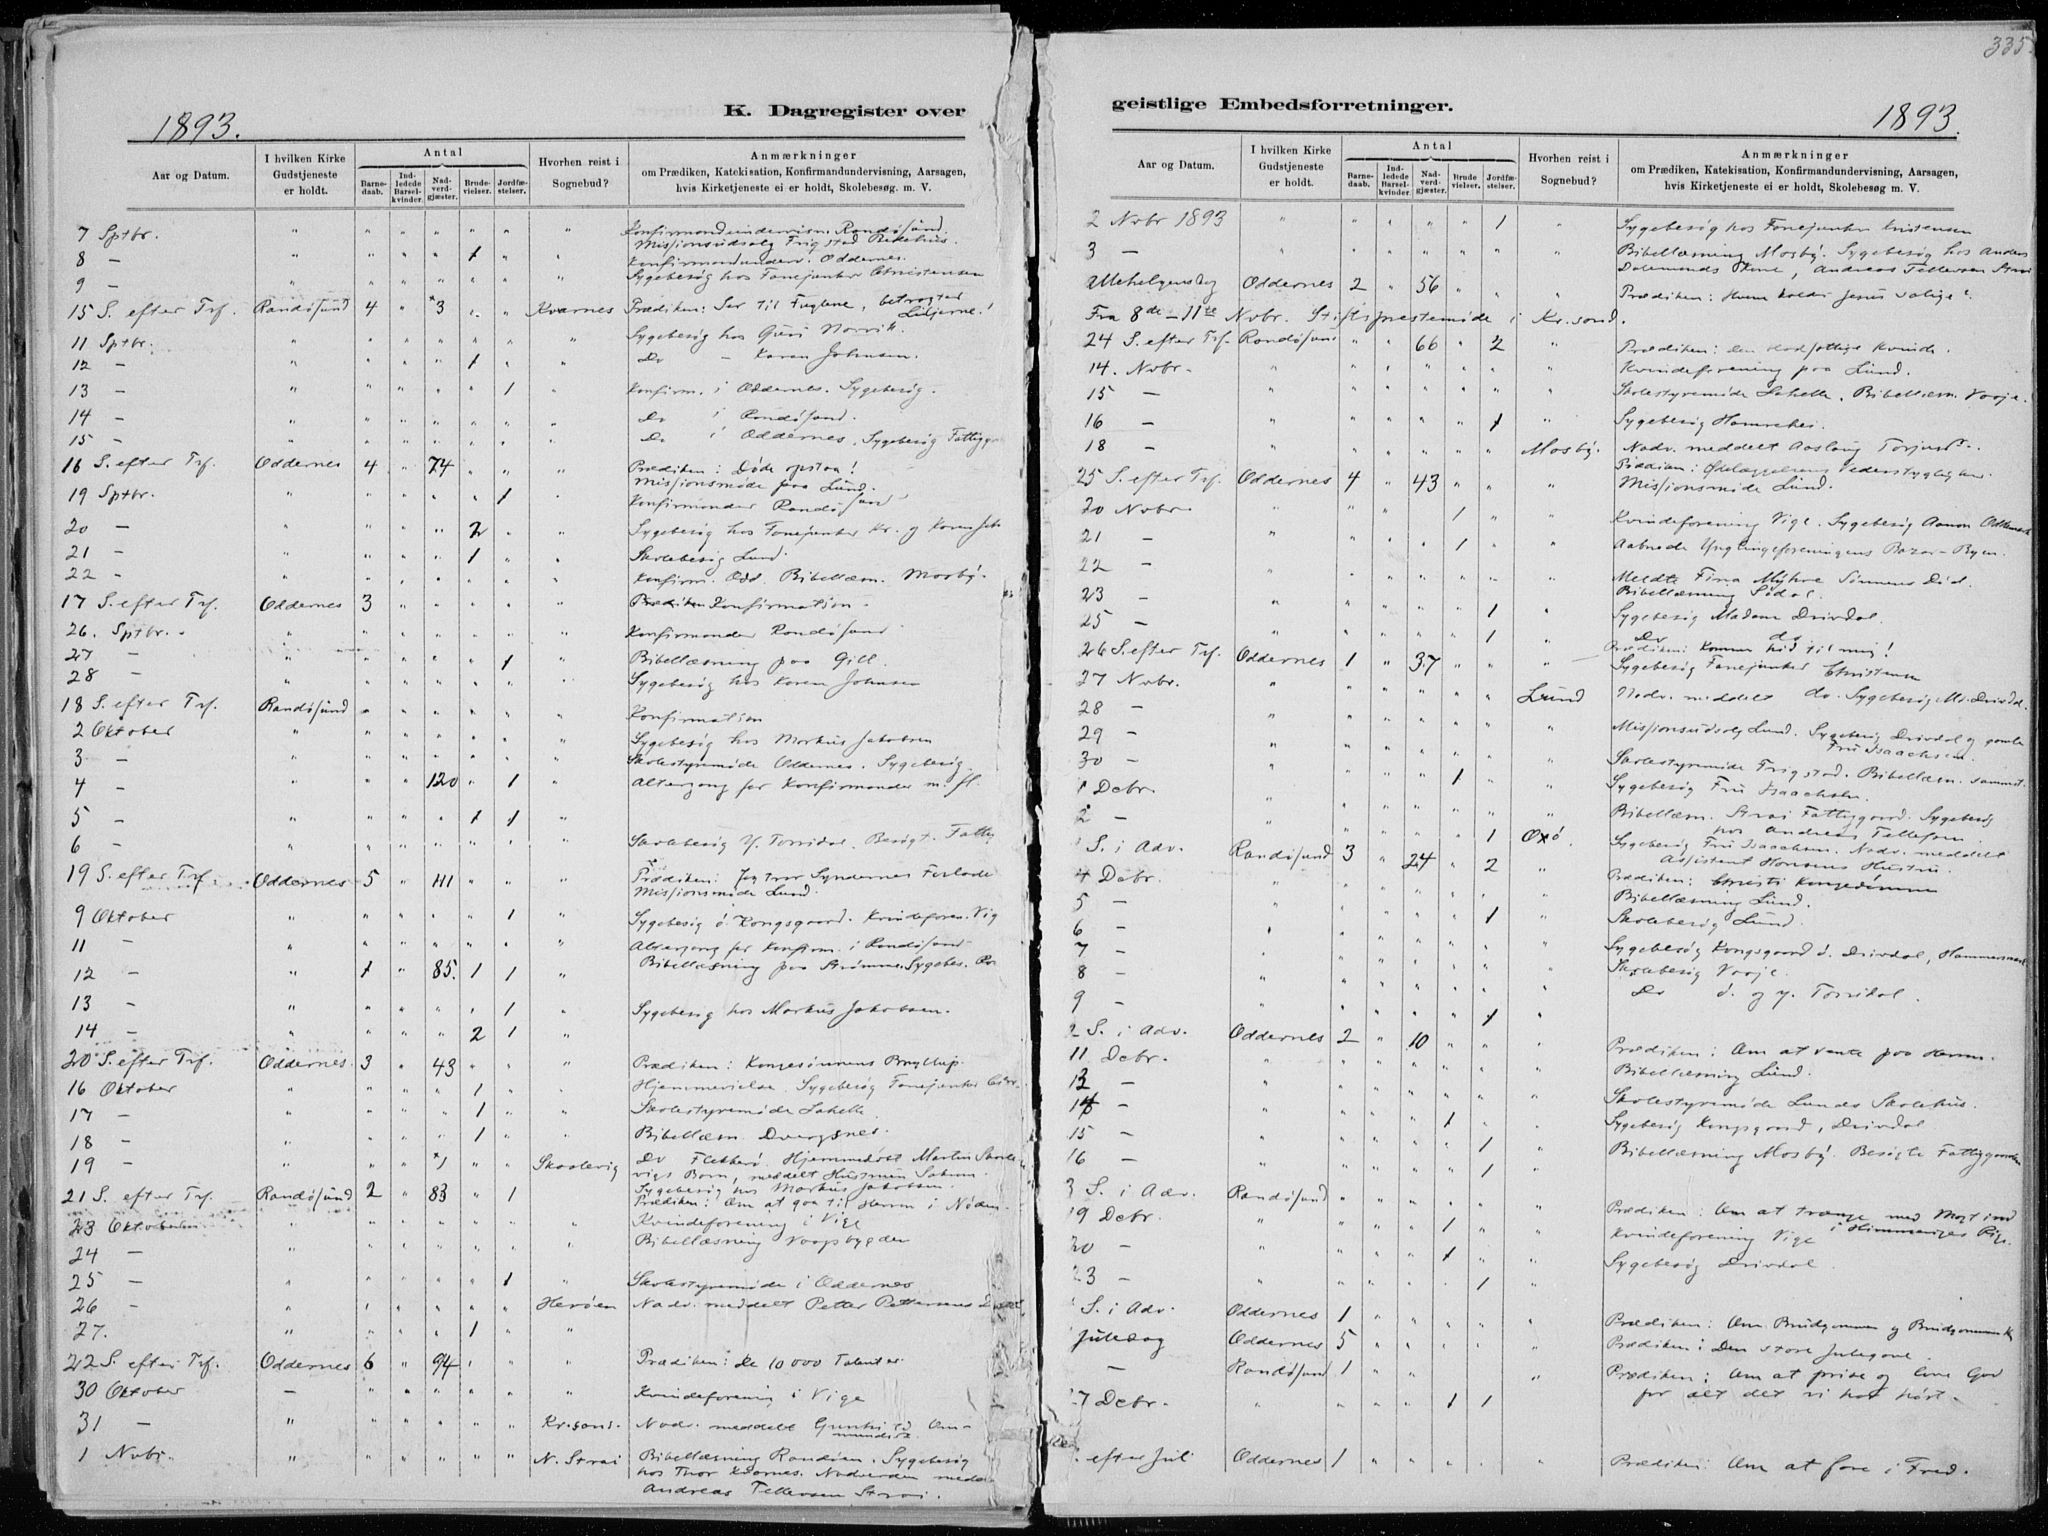 335
K. Dagregister over
1893.
Aar og Datum.
I hvilken Kirke Gudstjeneste er holdt.
Antal
Barnedaab.
Indledede Barselkvinder.
Nadverdgjæster.
Brudevielser.
Jordfæstelser.
Hvorhen reist i Sognebud?
Anmærkninger
om Prædiken, Katekisation, Konfirmandundervisning, Aarsagen,
hvis Kirketjeneste ei er holdt, Skolebesøg. m. V.
7 Sptbr. " " " " " " " Konfirmandundervisn. Randøsund.
Missionsudsalg Frigstad Bedehus.
8 — " " " " 1 " " Konfirmandunderv. Oddernes.
9 — " " " " " " " Sygebesøg hos Fanejunker Christensen
15 S. efter Trf. Randøsund 4 " *3 " " Kvarnes Prædiken: Ser til Fuglene, betragter Liljerne!
11 Sptbr. " " " " " " " Sygebesøg hos Guri
12 — " " " " 1 " " Do — Karen Johnsen.
13 — " " " " " 1 " Konfirm. i Oddernes. Sygebesøg.
14 — " " " " " " " Do i Randøsund.
15 — " " " " " " " Do i Oddernes. Sygebesøg Fattigg
16 S. efter Trf. Oddernes 4 " 74 " " " Prædiken: Døde opstaa!
Missionsmøde paa Lund.
19 Sptbr. " " " " " 1 " Konfirmander Randøsund
20 — " " " " 2 " " Sygebesøg hos Fanejunker Kr. og Karen Joh
21 — " " " " 1 " " Skolebesøg Lund.
22 — " " " " " " " Konfirm. Odd. Bibellæsn. Mosby.
17 S. efter Trf. Oddernes 3 " " " " " Konfirmation.
26. Sptbr. " " " " " " " Konfirmander Randøsund
27 — " " " " " 1 " Bibellæsning paa Gill.
28 — " " " " " " " Sygebesøg hos Karen Johnsen
18 S. efter Trf. Randøsund " " " " " " Konfirmation
2 Oktober " " " " " " " Sygebesøg hos Markus Jakobsen
3 — " " " " " " " Skolestyremøde Oddernes. Sygebesøg.
4 — " " " 120 " 1 " Altergang for Konfirmander m. fl.
5 — " " " " 1 1 "
6 — " " " " " " " Skolebesøg y. Torridal. Besøgt. Fattig
19 S. efter Trf. Oddernes 5 " 41 " " " Prædiken: Jeg tror Syndernes Forlade
Missionsmøde Lund.
9 Oktober " " " " " 1 " Sygebesøg ö. Kongsgaard. Kvindeforen. Vig
11 — " " " " " " " Altergang for Konfirm. i Randøsund
12 — " 1 " 85. 1 1 " Bibellæsning paa Strømme. Sygebes.
13 — " " " " " 1 " Sygebesøg hos Markus Jakobsen.
14 — " " " " 2 1 "
20 S. efter Trf. Oddernes. 3 " 43 " " " Prædiken: Kongesønnens Bryllup.
16 Oktober " " " " 1 " " Hjemmevielse. Sygebesøg Fanejunker Chr.
17 — " " " " 1 " " Skolestyremøde Lahelle.
18 — " " " " 1 " " Bibellæsn. Dvergsnes.
19 — " " " *1 " " Skaalevig Do Flekkerø. Hjemmedøbt Martin Skaale
vigs Barn, meddelt Hustruen Sakram.
Sygebesøg hos Markus Jakobsen.
21 S. efter Trf. Randøsund 2 " 83 " 1 " Prædiken: Om at gaa til Herren i Nøden.
23 Oktober " " " " " " " Kvindeforening i Vige
24 — " " " " " " " Bibellæsning Vaagsbygden
25 — " " " " " 1 " Skolestyremøde i Oddernes
26 — " " " " " " Herøen Nadv. meddelt Petter Pettersens
27. " " " " 1 " "
22 S. efter Trf. Oddernes 6 " 94 " " " Prædiken: De 10000 Talenter
30 Oktober — " " " " " " Kvindeforening i Vige
31 — " " " " " " Kr.sand. Nadv. meddelt Gunhild Om-
mundsen
1 Nvbr. " " " " " " N. Strai Bibellæsning Randøen. Sygebesøg
hos Thor Kvarnes. Nadverden medde
Andreas Tellefsen Strai.
geistlige Embedsforretninger.
1893.
Aar og Datum.
I hvilken Kirke Gudstjeneste er holdt.
Antal
Barnedaab.
Indledede Barselkvinder.
Nadverdgjæster.
Brudevielser.
Jordfæstelser.
Hvorhen reist i Sognebud?
Anmærkninger
om Prædiken, Katekisation, Konfirmandundervisning, Aarsagen,
hvis Kirketjeneste ei er holdt, Skolebesøg m. V.
2 Nvbr 1893 " " " " " 1 " Sygebesøg hos Fanejunker Kristensen
3 — " " " " " " " Bibellæsning Mosby. Sygebesøg hos Anders
Andreas Tellefsen Strai
Allehelgensdag Oddernes 2 " 56 " " " Prædiken: Hvem kalder Jesus salige?
Fra 8de–11te Nvbr. Stiftspræstemøde i Kr.sand.
24 S. efter Trf. Randøsund " " 66 " 2 " Prædiken: Den blodsottige Kvinde.
14. Nvbr. " " " " " " " Kvindeforening paa Lund.
15 — " " " " " " " Skolestyremøde Lahelle. Bibellæsn. Vraje.
16 — " " " " " 1 " Sygebesøg Hamrehei.
18 — " " " " " " Mosby. Nadv. meddelt Aaslaug Torjusd.
25 S. efter Trf. Oddernes 4 " 43 " " " Prædiken: Ødelæggelsens Vederstyggelighed
Missionsmøde Lund.
20 Nvbr. " " " " 1 " " Kvindeforening Vige. Sygebesøg Aanon
21 — " " " " 1 " " Aabnede Ynglingeforeningens Bazar–Byen.
22 — " " " " " " " Meldte Fina Myhre Sønnens Død.
23 — " " " " " " " Bibellæsning Sødal.
25 — " " " " " 1 " Sygebesøg Madame Drivdal.
" " " " " 1 " Do do
26 S. efter Trf. Oddernes 1 " 37 " " " Prædiken: Kommer hid til mig!
27 Nvbr. " " " " " " " Sygebesøg Fanejunker Christensen
28 — " " " " " " Lund Nadv. meddelt do. Sygebesøg M. Drivdal.
29 — " " " " " " " Missionsudsalg Lund. Sygebesøg Drivdal og gamle
Fru Isaachsen.
30 — " " " " " " " Skolestyremøde Frigstad. Bibellæsn. sammst.
1 Dcbr. " " " " 1 " " Sygebesøg Fru Isaachsen.
2 — " " " " " " " Bibellæsn. Strai Fattiggaard. Sygebesøg
hos Andreas Tellefsen.
" " " " " 1 Oxö. Sygebesøg Fru Isaachsen. Nadv. meddelt
Assistent Hansens Hustru.
1 S. i Adv. Randøsund 3 " 24 " 2 " Prædiken: Christi Kongedømme
4 Dcbr. " " " " " " " Bibellæsning Lund.
5 — " " " " " 1 " Skolebesøg Lund.
6 — " " " " " " " Sygebesøg Kongsgaard ö. Drivdal, Hammersmark
7 — " " " " " " " Skolebesøg Vraje.
8 — " " " " " " " Do ö. og y. Torridal.
9 — " " " " " 1 "
2 S. i Adv. Oddernes 2 " 10 " " " Prædiken: Om at vente paa Herren.
11 Dcbr. " " " " " " " Bibellæsning Lund.
12 — " " " " " " " Skolestyremøde Lunds Skolehus.
14 — " " " " 1 " " Sygebesøg Kongsgaard, Drivdal.
15 — " " " " " 1 " Bibellæsning Mosby. Besøgte Fattiggaarden
16 — " " " " " 1 "
3 S. i Adv. Randøsund " " " " " " Prædiken: Om at trænge med Magt ind
i Himmeriges Rige.
19 Dcbr. " " " " 1 " " Kvindeforening Vige
20 — " " " " 1 " " Sygebesøg Drivdal.
23 — " " " " " 1 "
S. i Adv. Oddernes 1 " " " " " Prædiken: Om Brudgommen og Brudgommens
Juledag Oddernes 5 " " " " " Prædiken: Den store Julegave
— Randøsund 1 " " " " " Prædiken: Om at prise og love Gud
for alt det vi har hørt.
7 Dcbr. " " " " 1 1 "
efter Jul Oddernes 1 " " " " " Prædiken: Om at fare i Fred.